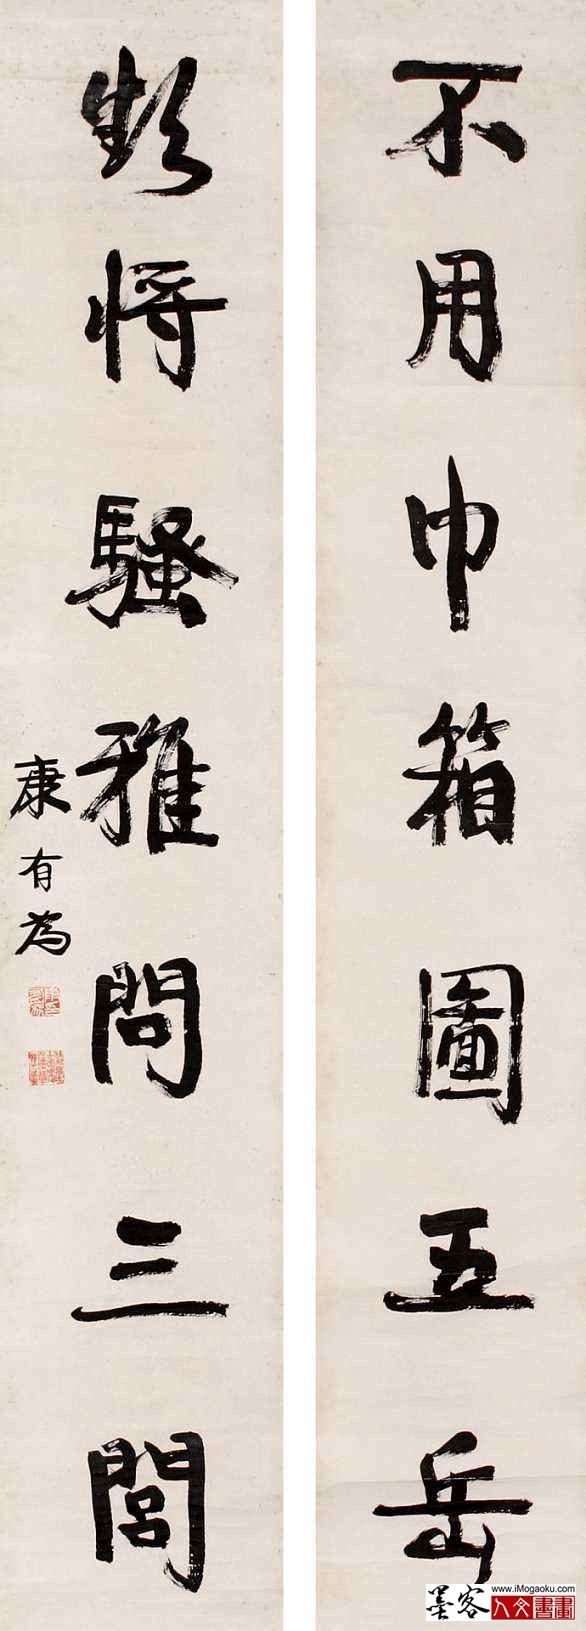 不用巾箱圖五岳
将騷雅問三閭
康有為
墨客
www.iMogaoku.com
人文書畫